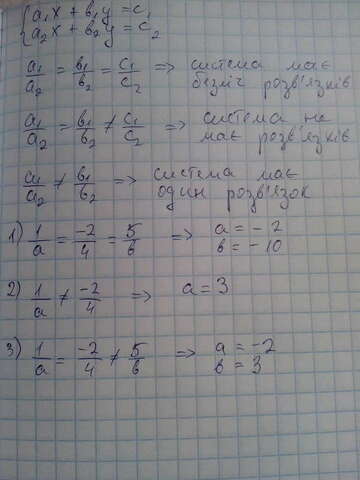 { a₁x + b₁y = c₁
a₂x + b₂y = c₂
a₁/a₂ = b₁/b₂ = c₁/c₂ => система має
безліч розв'язків
a₁/a₂ = b₁/b₂ ≠ c₁/c₂ => система не
має розв'язків
a₁/a₂ ≠ b₁/b₂ => система має
один розв'язок
1) 1/a = -2/4 = 5/b => a = -2
b = -10
2) 1/a ≠ -2/4 => a = 3
3) 1/a = -2/4 ≠ 5/b => a = -2
b = 3